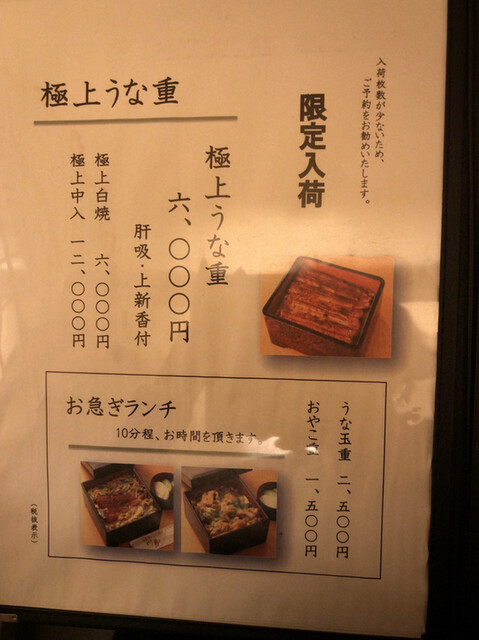 入荷枚数が少ないため、
ご予約をお勧めいたします。
限定入荷
極上うな重
極上うな重
六、〇〇〇円
肝吸・上新香付
極上白焼 六、〇〇〇円
極上中入 一二、〇〇〇円
お急ぎランチ
10分程、お時間を頂きます。
うな玉重 二、五〇〇円
おやこ重 一、五〇〇円
(税抜表示)